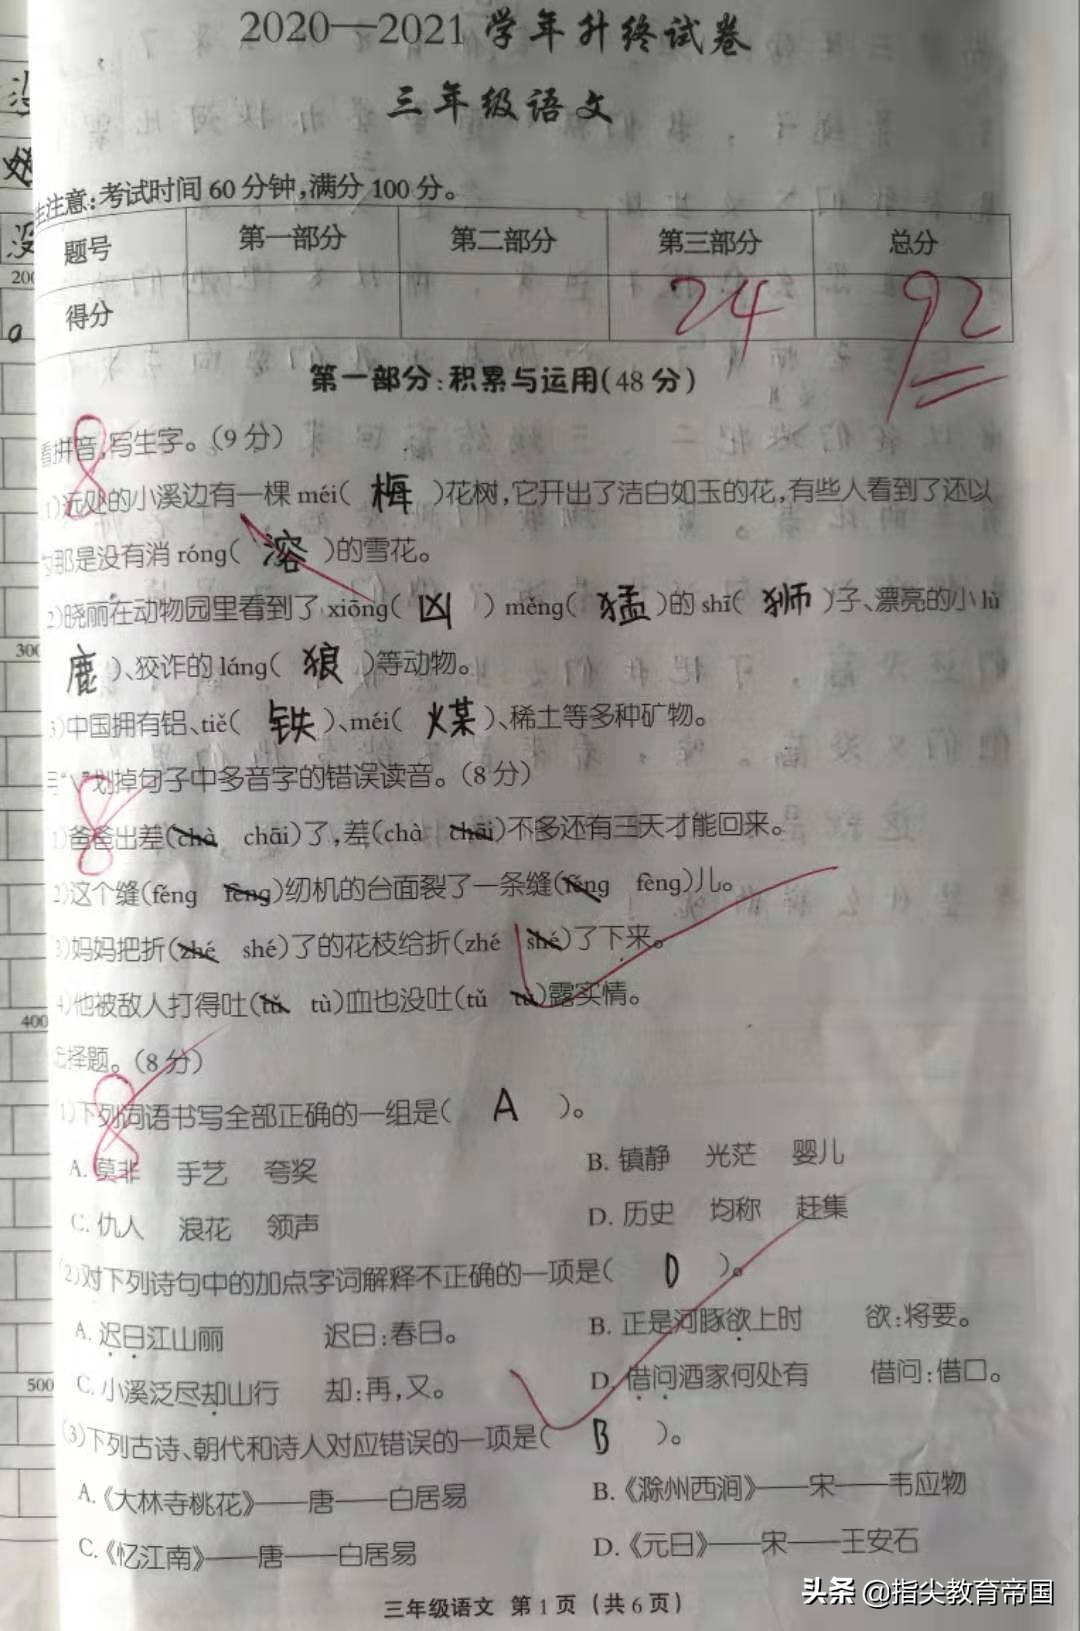 2020—2021学年升终试卷
三年级语文
注意:考试时间60分钟,满分100分。
题号 第一部分 第二部分 第三部分 总分
得分 24 92
第一部分:积累与运用(48分)
看拼音,写生字。(9分) 8
1)远处的小溪边有一棵méi( 梅 )花树,它开出了洁白如玉的花,有些人看到了还以
那是没有消róng( 溶 )的雪花。
2)晓丽在动物园里看到了xiōng( 凶 ) měng( 猛 )的shī( 狮 )子、漂亮的小lù
鹿 )、狡诈的láng( 狼 )等动物。
)中国拥有铝、tiě( 铁 )、méi( 煤 )、稀土等多种矿物。
“\”划掉句子中多音字的错误读音。(8分) 8
1)爸爸出差(chà chāi)了,差(chà chāi)不多还有三天才能回来。
2)这个缝(féng fèng)纫机的台面裂了一条缝(féng fèng)儿。
3)妈妈把折(zhé shé)了的花枝给折(zhé shé)了下来。
4)他被敌人打得吐(tǔ tù)血也没吐(tǔ tù)露实情。
择题。(8分) 8
(1)下列词语书写全部正确的一组是( A )。
A. 莫非 手艺 夸奖 B. 镇静 光茫 婴儿
C. 仇人 浪花 领声 D. 历史 均称 赶集
(2)对下列诗句中的加点字词解释不正确的一项是( D )。
A. 迟日江山丽 迟日:春日。 B. 正是河豚欲上时 欲:将要。
C. 小溪泛尽却山行 却:再,又。 D. 借问酒家何处有 借问:借口。
(3)下列古诗、朝代和诗人对应错误的一项是( B )。
A.《大林寺桃花》——唐——白居易 B.《滁州西涧》——宋——韦应物
C.《忆江南》——唐——白居易 D.《元日》——宋——王安石
三年级语文 第1页(共6页)
200
300
400
500
头条 @指尖教育帝国